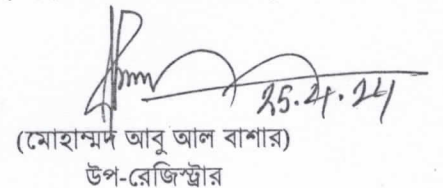 25.4.24
(মোহাম্মদ আবু আল বাশার)
উপ-রেজিস্ট্রার